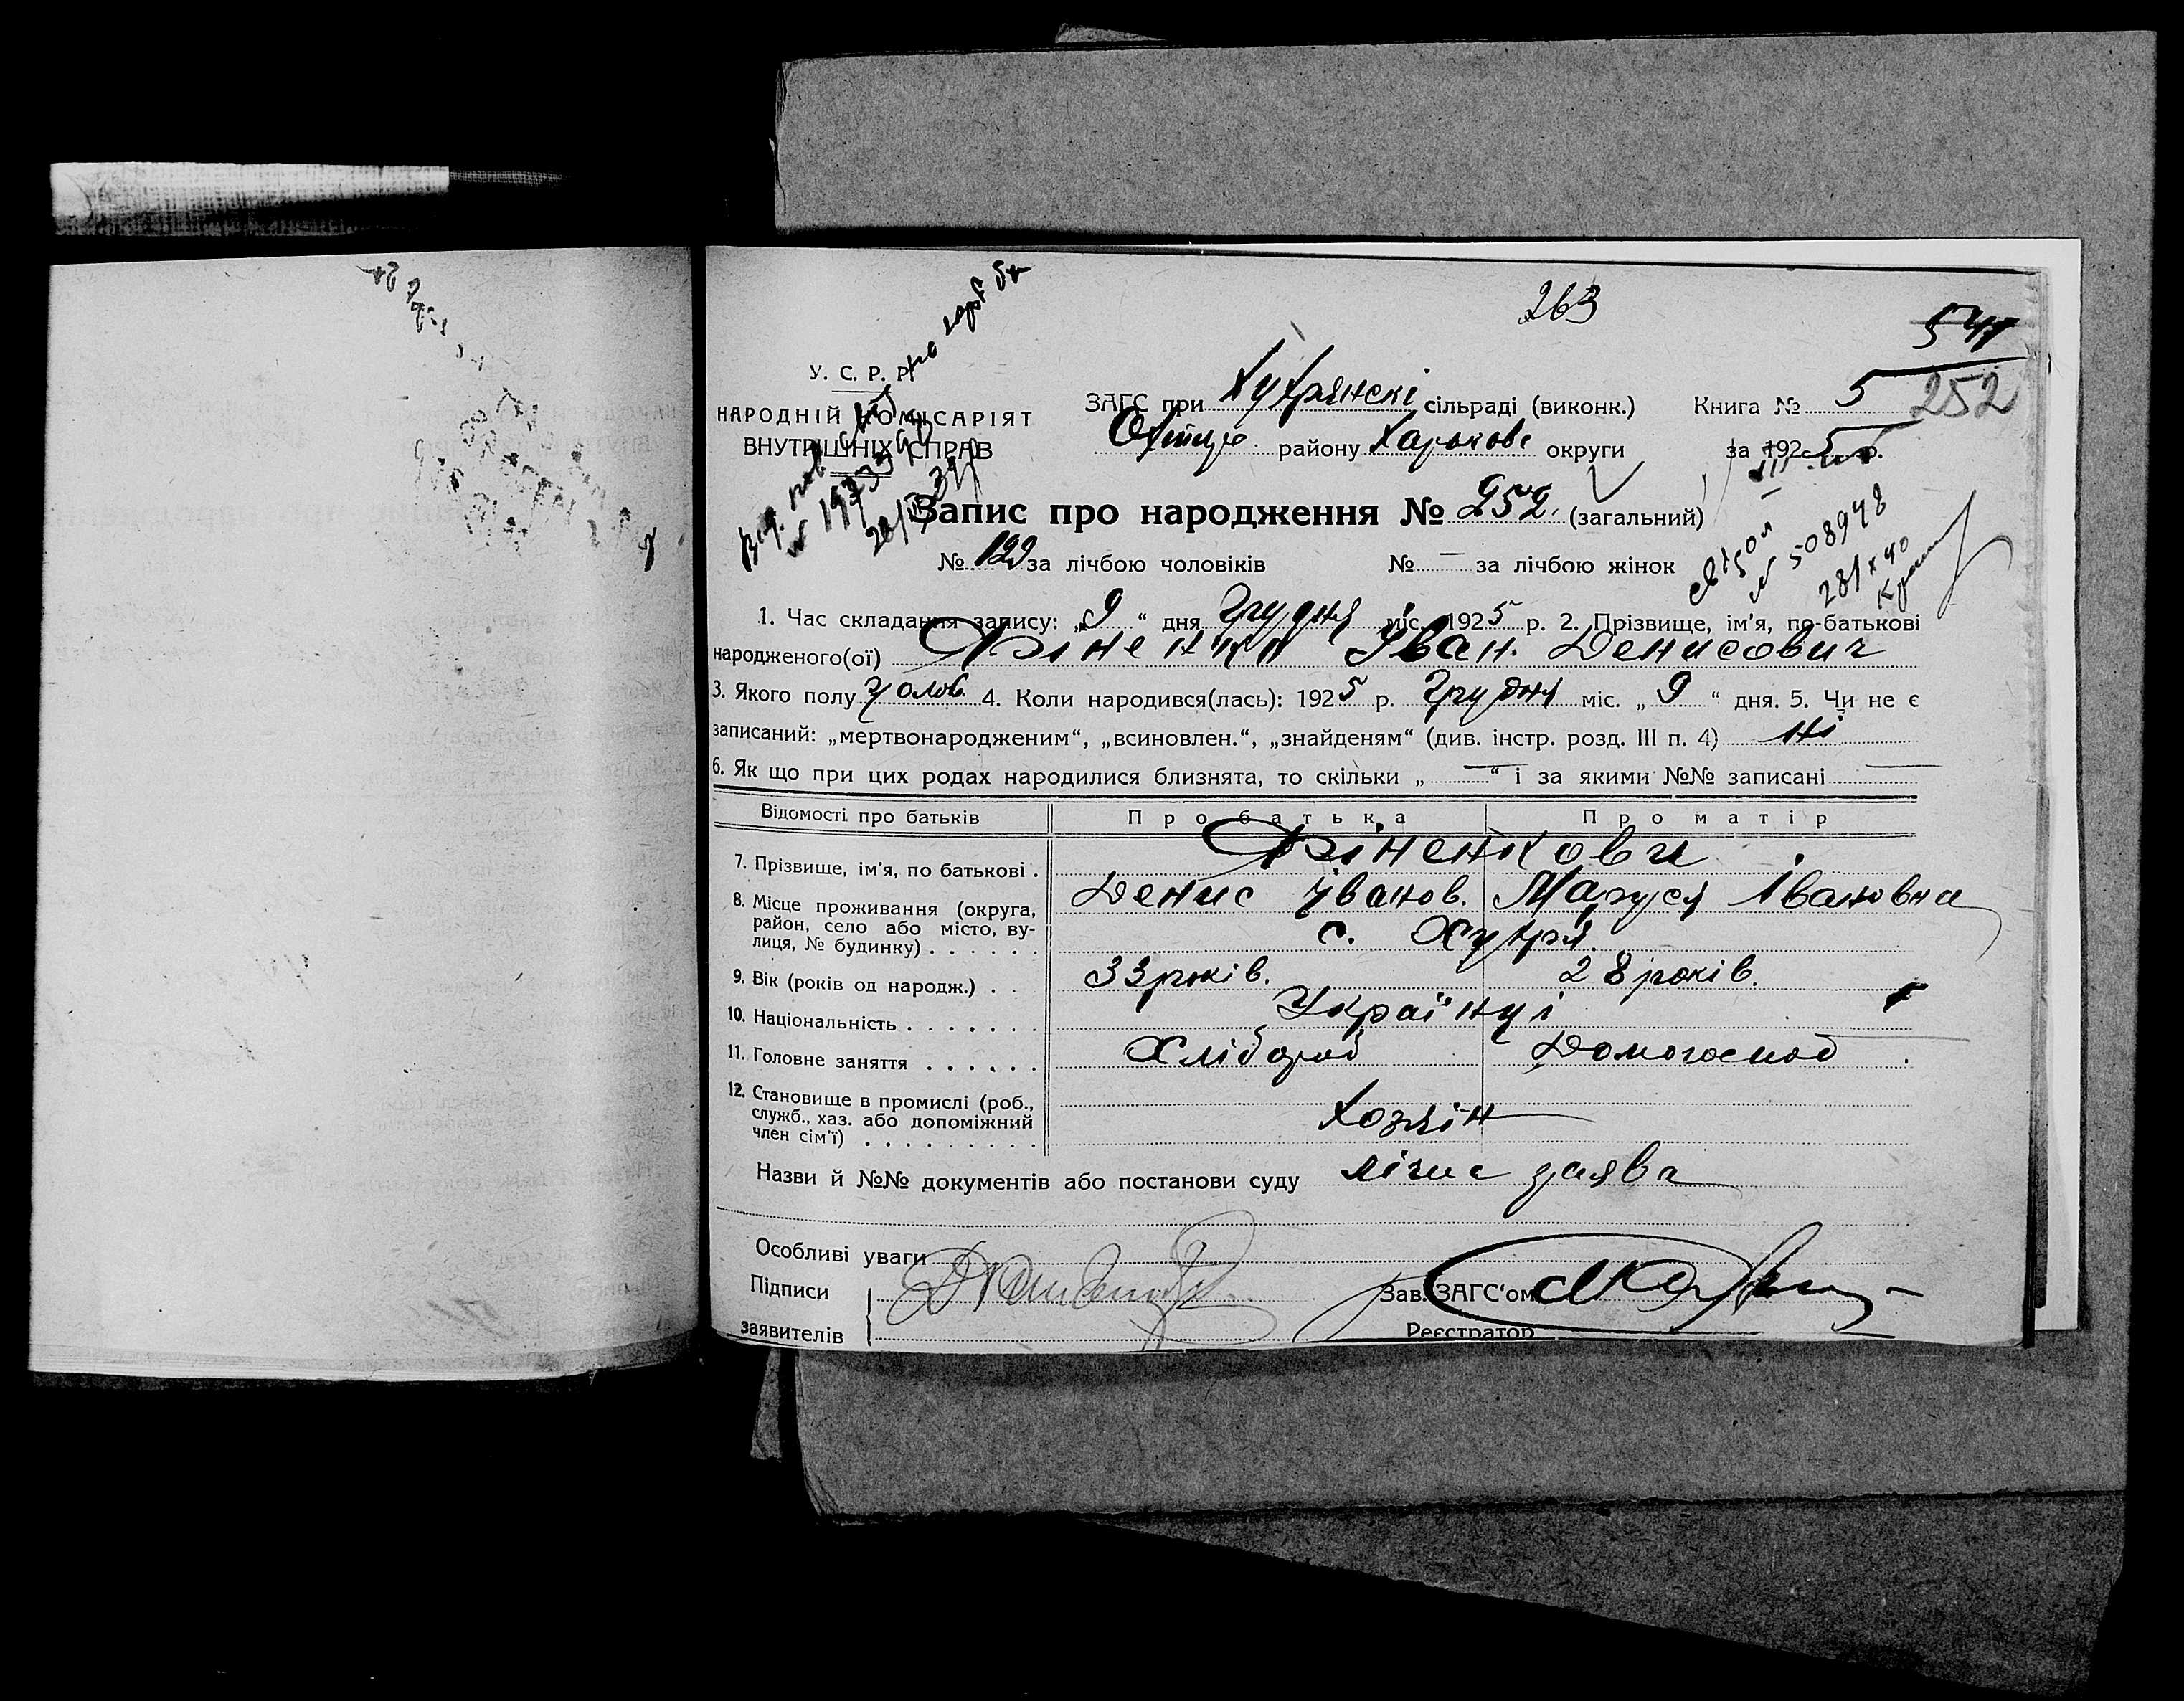 263
541
5 252
У. С. Р. Р.
НАРОДНІЙ КОМІСАРІЯТ
ВНУТРІШНІХ СПРАВ
ЗАГС при Хухрянскі сільраді (виконк.) Книга №
району Харькове округи за 1925 р.
Запис про народження № 252. (загальний)
№ 508948
№ 129 за лічбою чоловіків № — за лічбою жінок
1. Час складання запису: „9“ дня Грудня міс. 1925 р. 2. Прізвище, ім'я, по-батькові
народженого(ої) Іван. Денисович
3. Якого полу чолов. 4. Коли народився(лась): 1925 р. Грудня міс. „9“ дня. 5. Чи не є
записаний: „мертвонародженим“, „всиновлен.“, „знайденям“ (див. інстр. розд. III п. 4) Ні
6. Як що при цих родах народилися близнята, то скільки „—“ і за якими №№ записані —
Відомості про батьків Про батька Про матір
7. Прізвище, ім'я, по батькові .
Денис Іванов. Маруся Івановна
8. Місце проживання (округа,
район, село або місто, ву-
лиця, № будинку) . . . . . . с. Хухря.
9. Вік (років од народж.) . . 33 років. 28 років.
10. Національність . . . . . . . Українці
11. Головне заняття . . . . . . Хлібороб Домогоспод.
12. Становище в промислі (роб.,
служб., хаз. або допоміжний
член сім'ї) . . . . . . . . . Хозяін
Назви й №№ документів або постанови суду лічна заява
Особливі уваги
Підписи
Зав. ЗАГС'ом
заявителів
Реєстратор